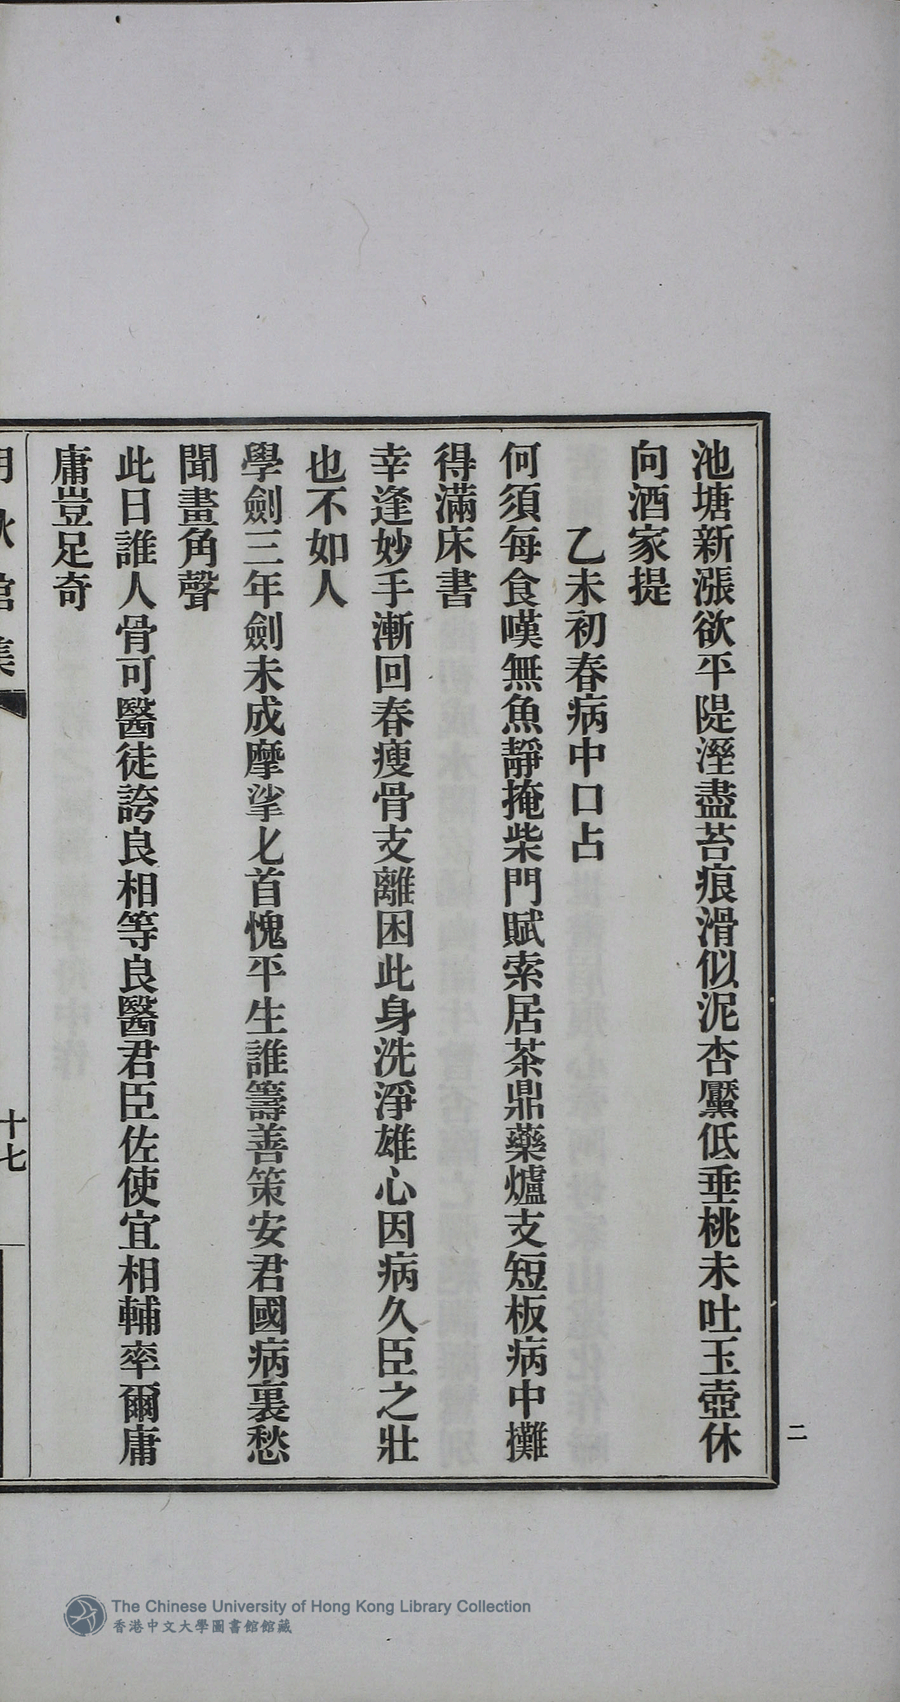 池塘新漲欲平隄溼盡苔痕滑似泥杏黶低垂桃未吐玉壺休
向酒家提
乙未初春病中口占
何須每食嘆無魚靜掩柴門賦索居茶鼎藥爐支短板病中攤
得滿床書
幸逢妙手漸回春瘦骨支離困此身洗淨雄心因病久臣之壯
也不如人
學劍三年劍未成摩挲匕首愧平生誰籌善策安君國病裏愁
聞畫角聲
此日誰人骨可醫徒誇良相等良醫君臣佐使宜相輔率爾庸
庸豈足奇
集
十七
二
The Chinese University of Hong Kong Library Collection
香港中文大學圖書館館藏